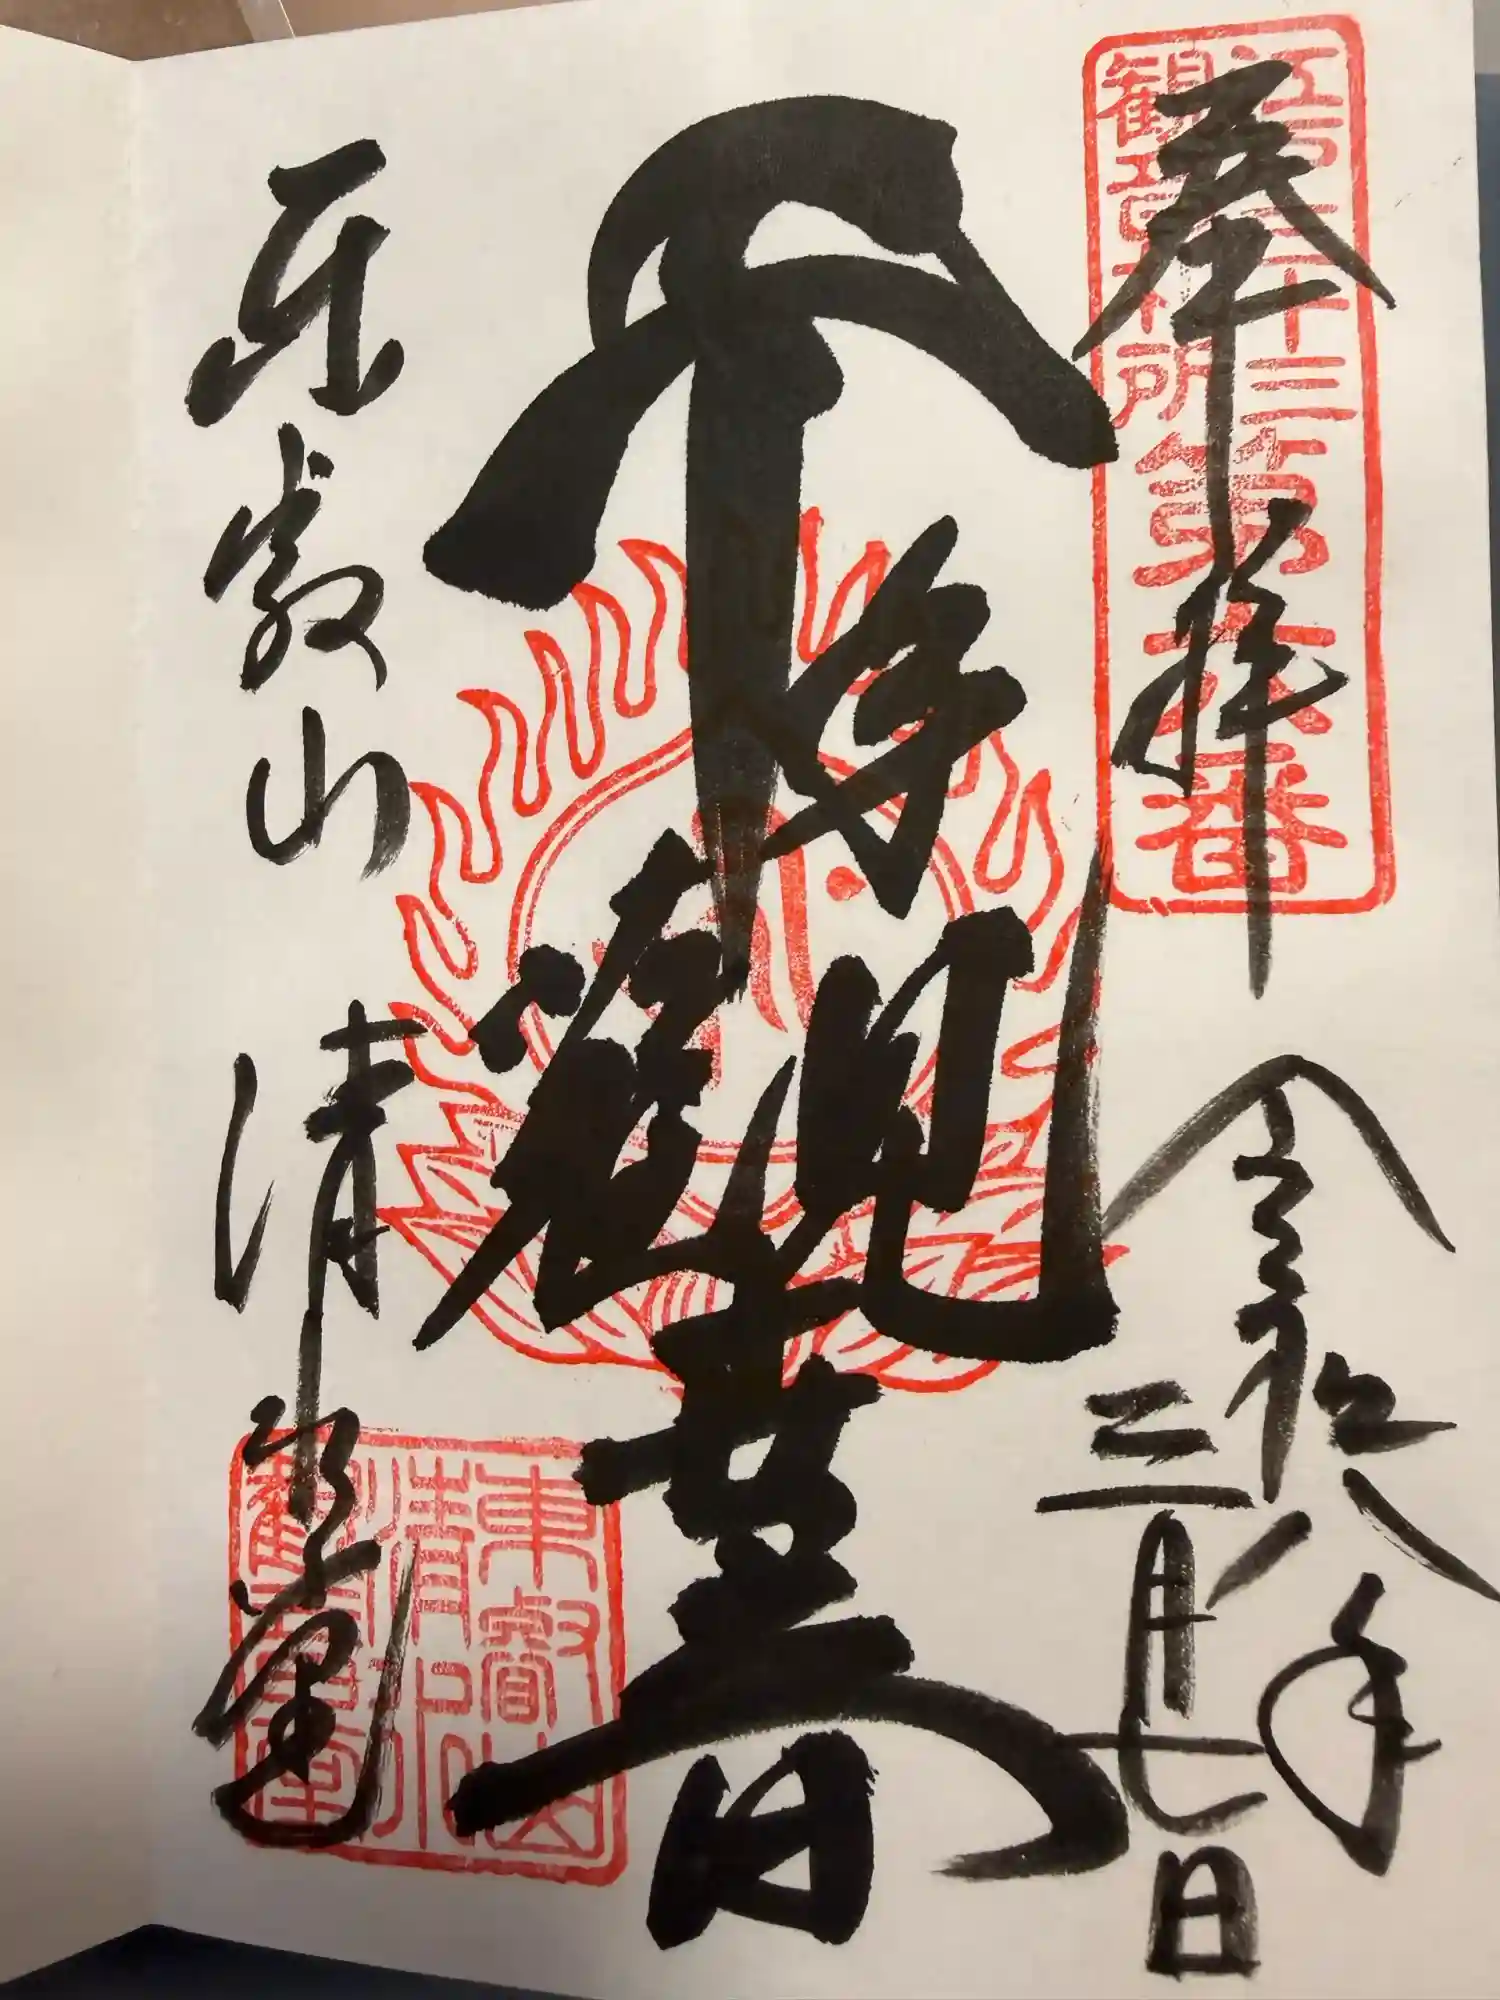 奉拝
江戸三十三
観音札所
第六番
令和八年
三月七日
千手観音
東叡山
清水堂
東叡山
清水
観音堂